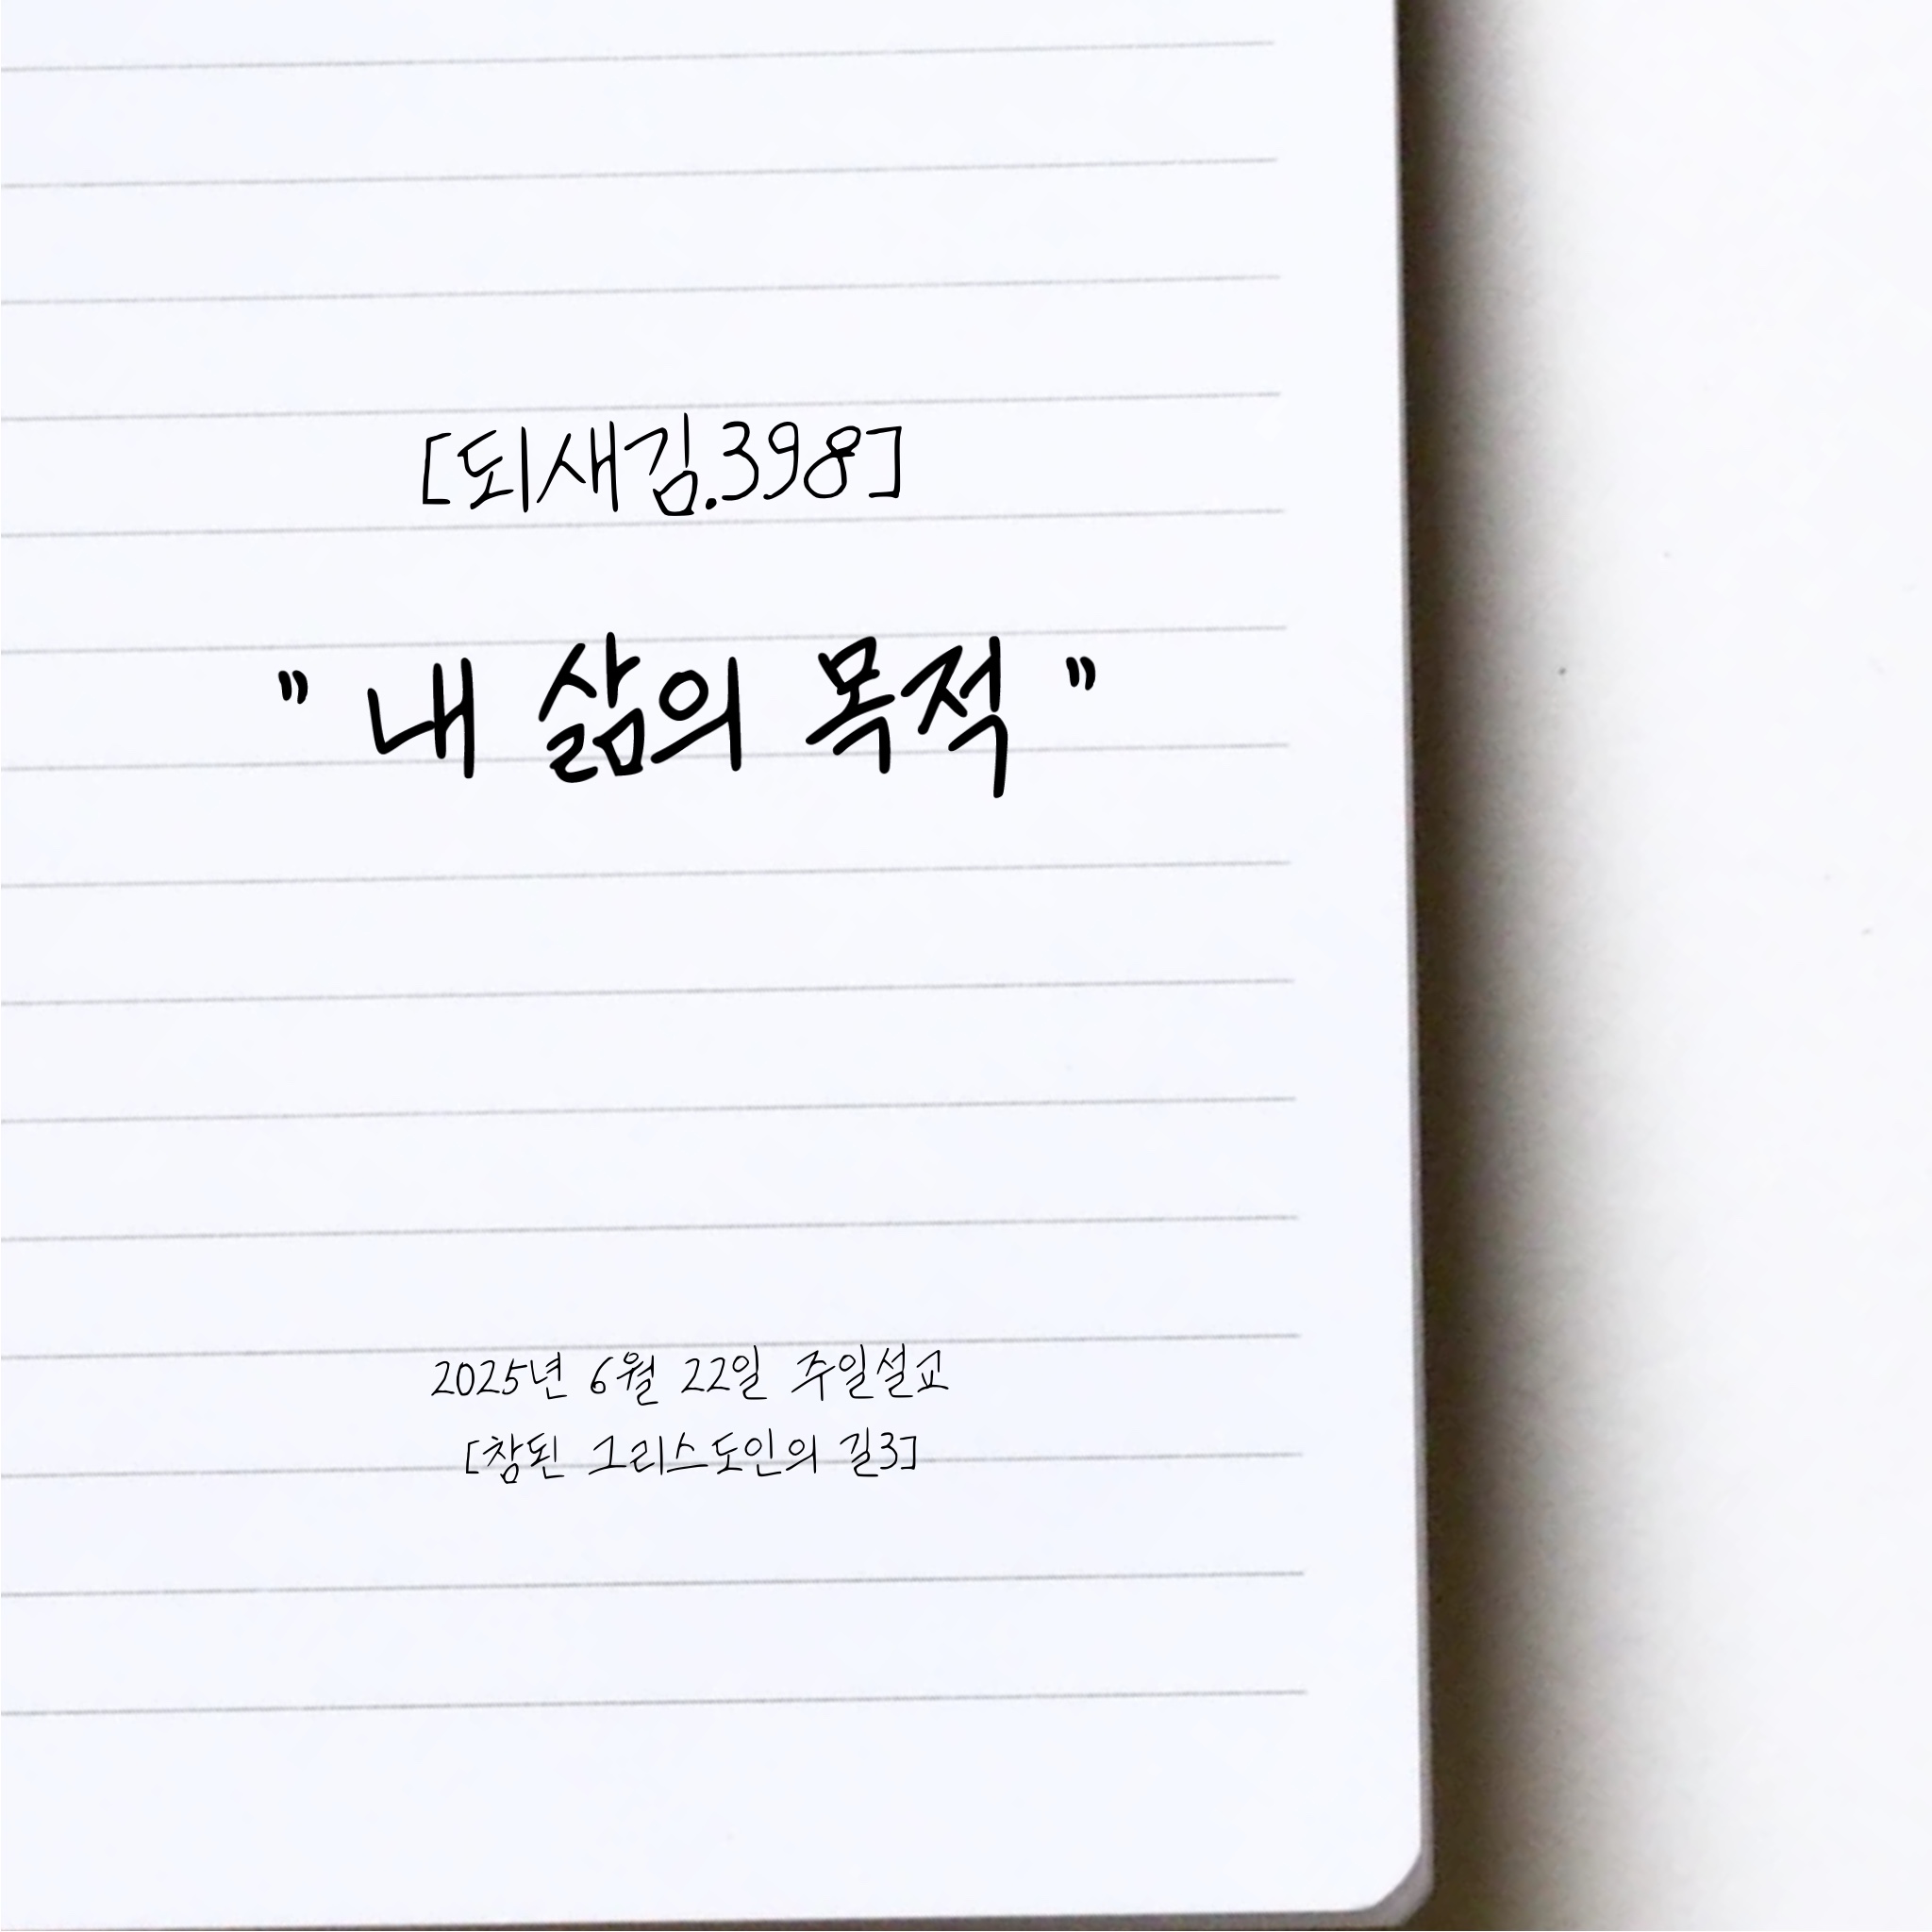 [되새김.398]
" 내 삶의 목적 "
2025년 6월 22일 주일설교
[참된 그리스도인의 길3]